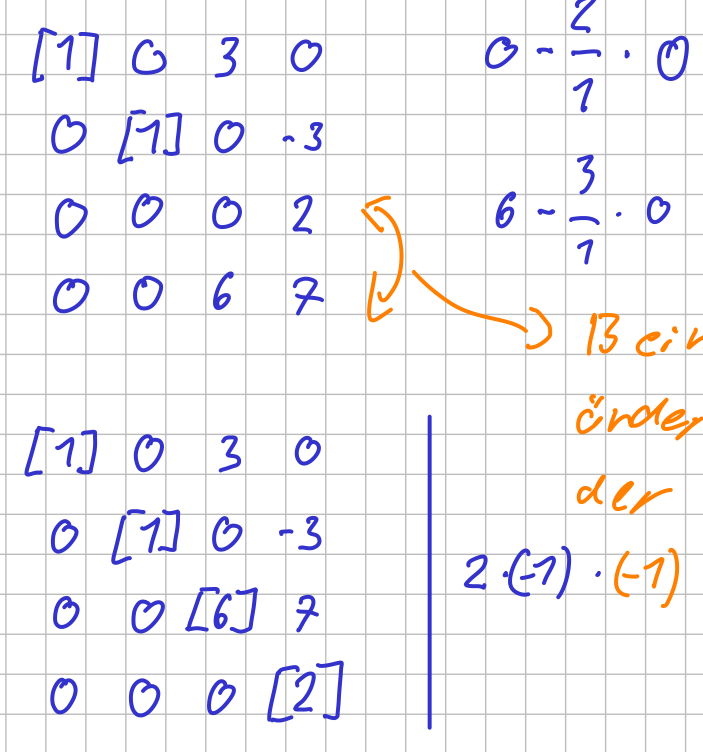 [1] 0 3 0
0 - 2/1 · 0
0 [1] 0 -3
0 0 0 2
6 - 3/1 · 0
0 0 6 7
der
[1] 0 3 0
0 [1] 0 -3
2 · (-1) · (-1)
0 0 [6] 7
0 0 0 [2]